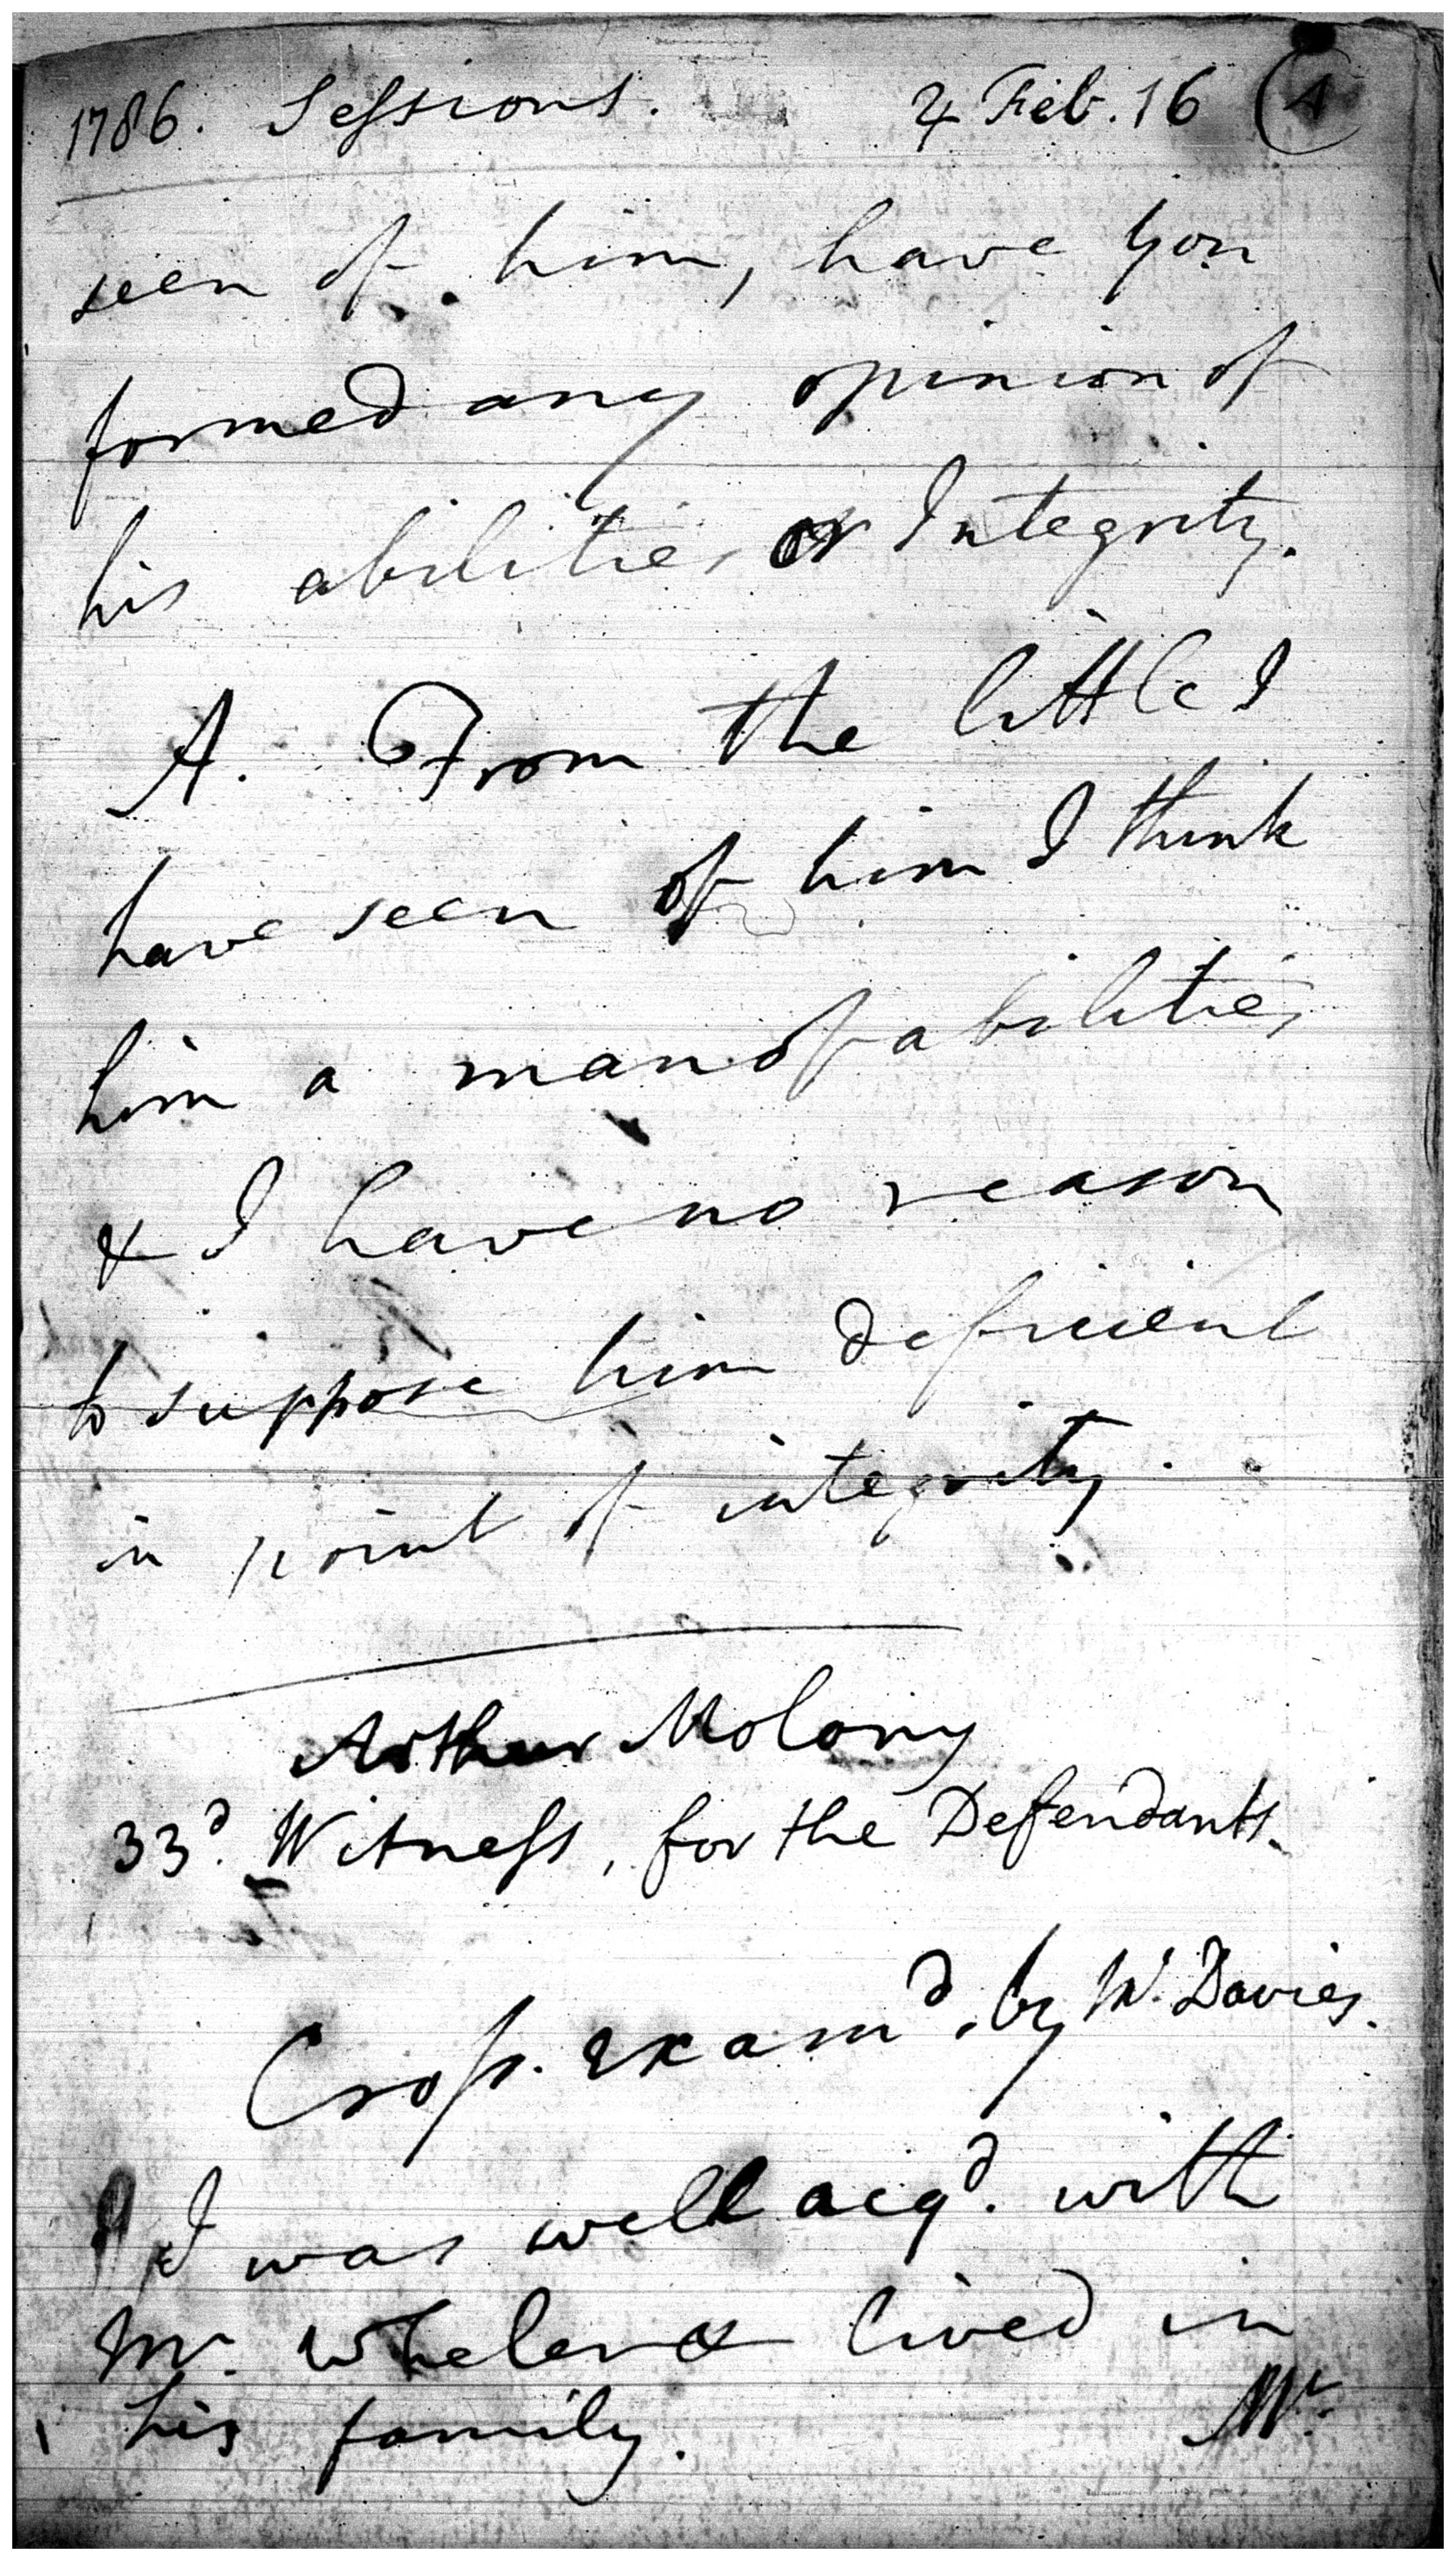 1786. Sessions. ♃ Feb. 16 (4)
seen of him, have you
formed any opinion of
his abilities or Integrity.
A. From the little I
have seen of him I think
him a man of abilities
& I have no reason
to suppose him deficient
in point of integrity.
Arthur Molony
33d. Witness, for the Defendants.
Cross. examd. by Mr. Davies.
I was well acqd. with
Mr. Wheler & lived in
his family.
Mr.